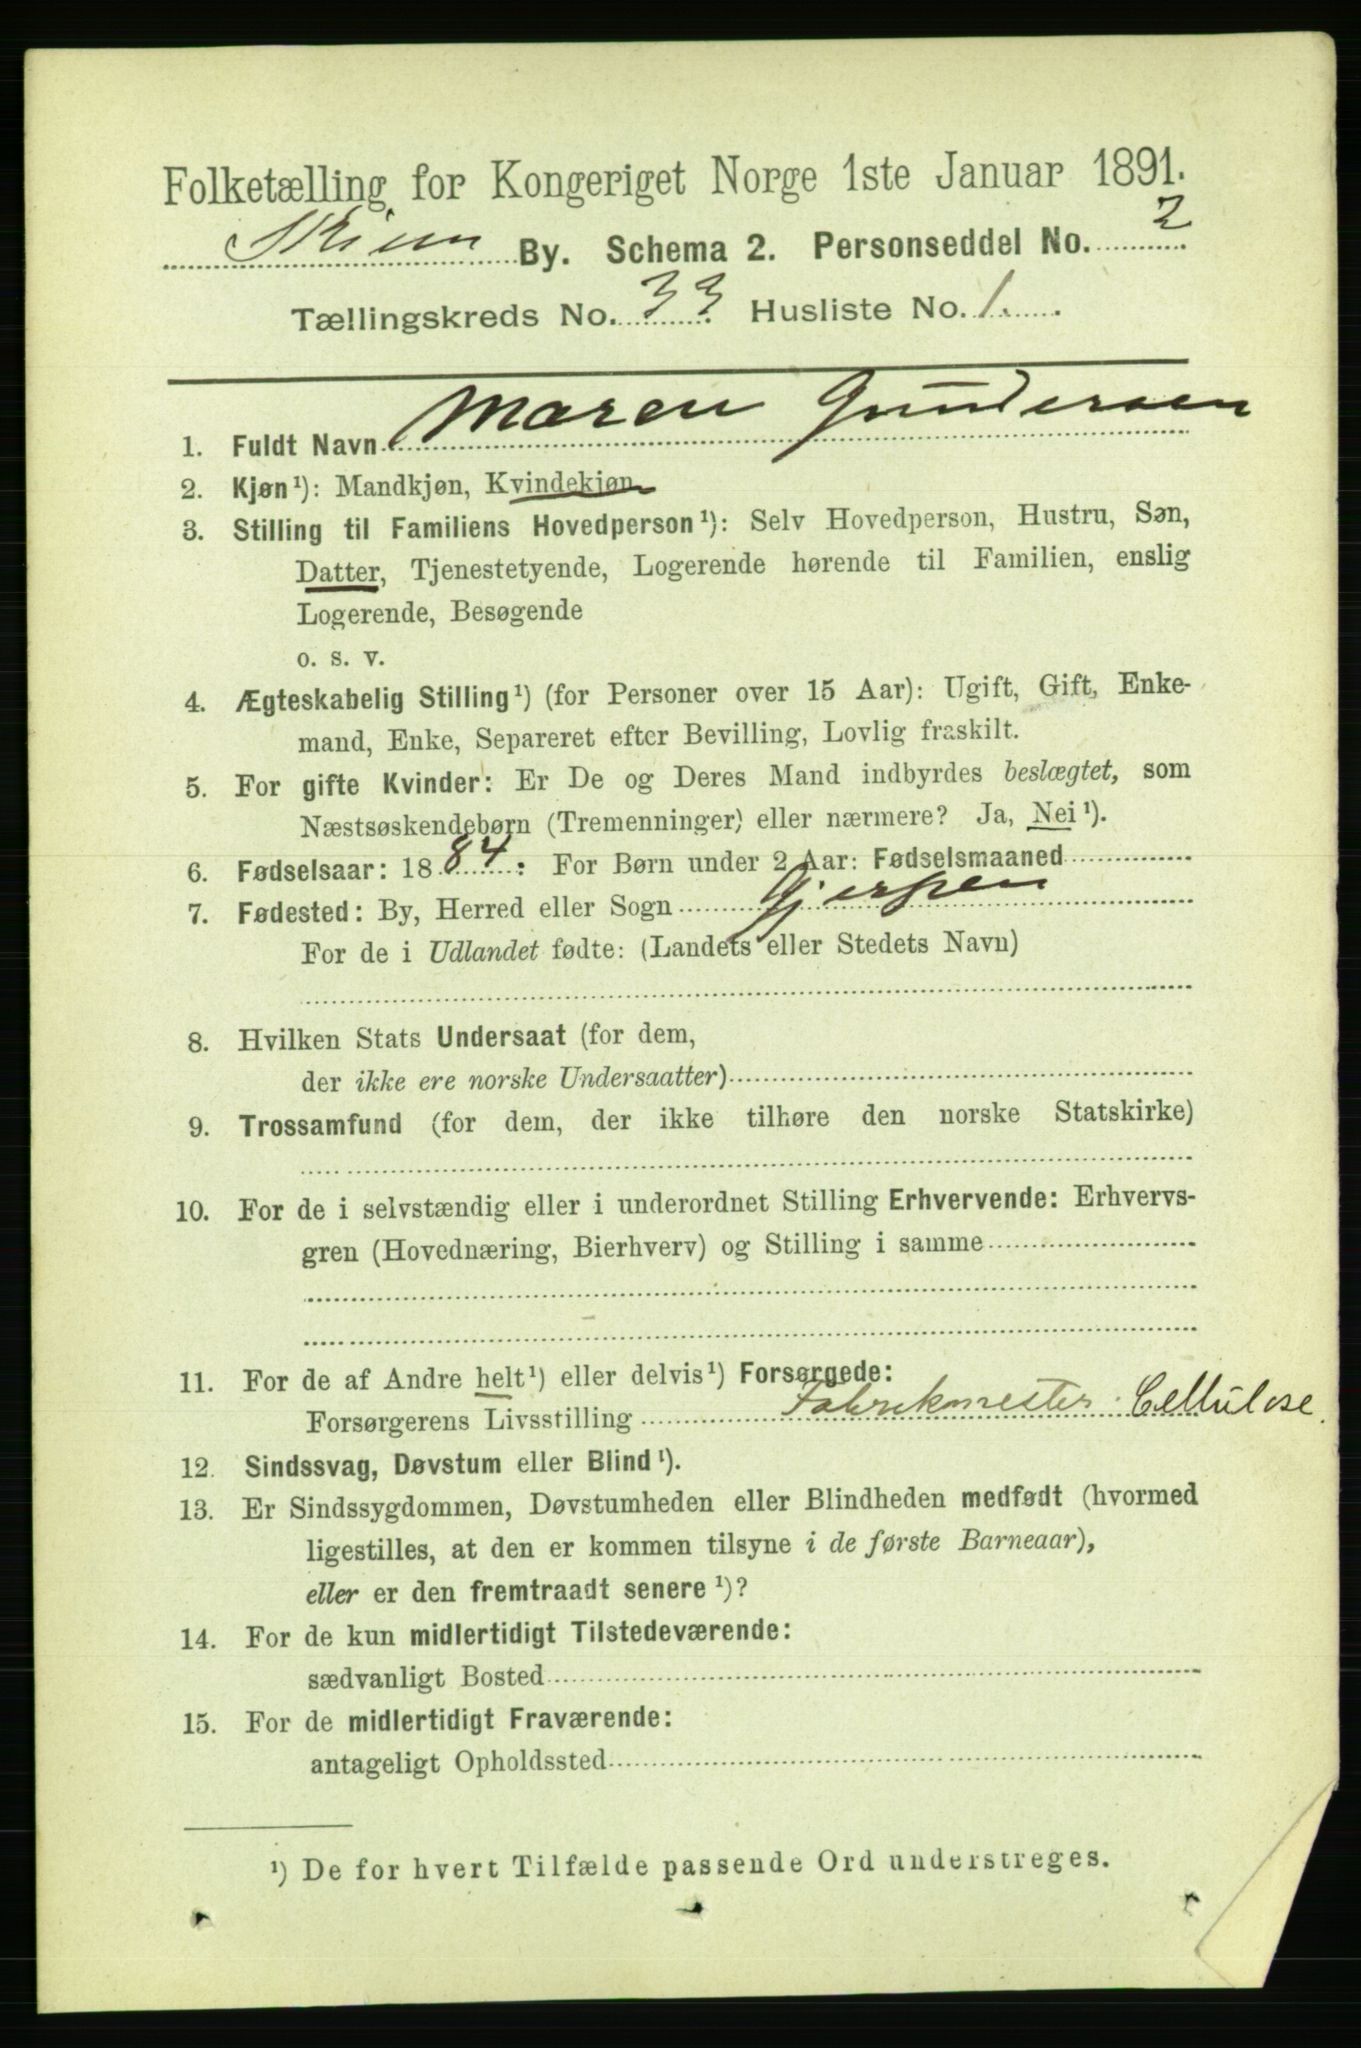 Folketælling for Kongeriget Norge 1ste Januar 1891.
Skien By. Schema 2. Personseddel No. 2
Tællingskreds No. 33 Husliste No. 1.
1. Fuldt Navn Maren Gundersen
2. Kjøn¹): Mandkjøn, Kvindekjøn
3. Stilling til Familiens Hovedperson¹): Selv Hovedperson, Hustru, Søn,
Datter, Tjenestetyende, Logerende hørende til Familien, enslig
Logerende, Besøgende
o. s. v.
4. Ægteskabelig Stilling¹) (for Personer over 15 Aar): Ugift, Gift, Enke-
mand, Enke, Separeret efter Bevilling, Lovlig fraskilt.
5. For gifte Kvinder: Er De og Deres Mand indbyrdes beslægtet, som
Næstsøskendebørn (Tremenninger) eller nærmere? Ja, Nei¹).
6. Fødselsaar: 1884. For Børn under 2 Aar: Fødselsmaaned
7. Fødested: By, Herred eller Sogn Gjerpen
For de i Udlandet fødte: (Landets eller Stedets Navn)
8. Hvilken Stats Undersaat (for dem,
der ikke ere norske Undersaatter)
9. Trossamfund (for dem, der ikke tilhøre den norske Statskirke)
10. For de i selvstændig eller i underordnet Stilling Erhvervende: Erhvervs-
gren (Hovednæring, Bierhverv) og Stilling i samme
11. For de af Andre helt¹) eller delvis¹) Forsørgede:
Forsørgerens Livsstilling Fabrikmester Cellulose.
12. Sindssvag, Døvstum eller Blind¹).
13. Er Sindssygdommen, Døvstumheden eller Blindheden medfødt (hvormed
ligestilles, at den er kommen tilsyne i de første Barneaar),
eller er den fremtraadt senere¹)?
14. For de kun midlertidigt Tilstedeværende:
sædvanligt Bosted
15. For de midlertidigt Fraværende:
antageligt Opholdssted
¹) De for hvert Tilfælde passende Ord understreges.